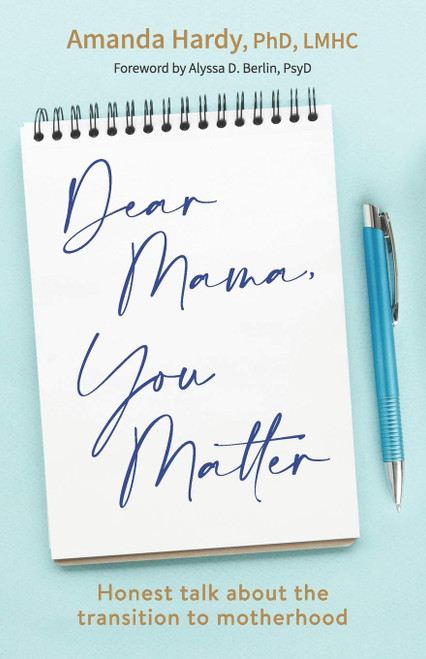 Amanda Hardy, PhD, LMHC
Foreword by Alyssa D. Berlin, PsyD
Dear
Mama,
You
Matter
Honest talk about the
transition to motherhood